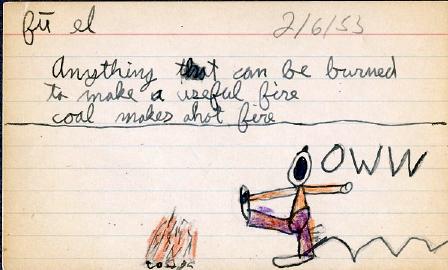 fū el 2/6/53
Anything that can be burned
to make a useful fire
coal makes a hot fire
OWW